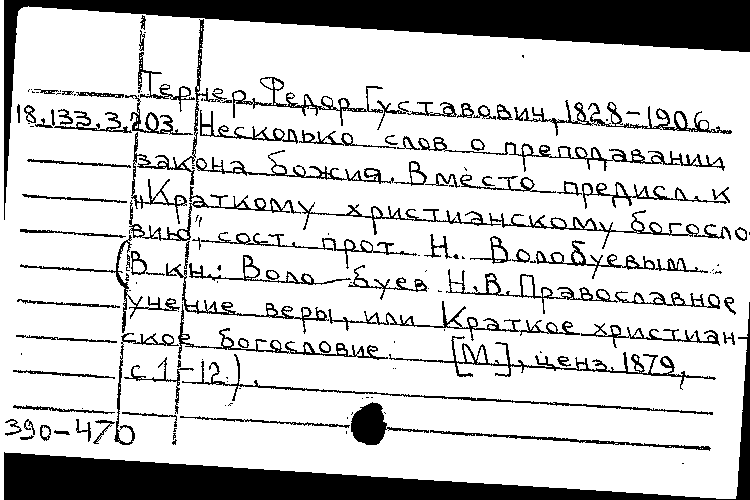 Тернер, Федор Густавович, 1828-1906.
18.133.3.203. Несколько слов о преподавании
закона божия. Вместо предисл. к
„Краткому христианскому богосло-
вию", сост. прот. Н. Волобуевым.
(В кн.: Воло-буев Н.В. Православное
учение веры, или Краткое христиан-
ское богословие. [М.], ценз. 1879,
с. 1-12).
390-470